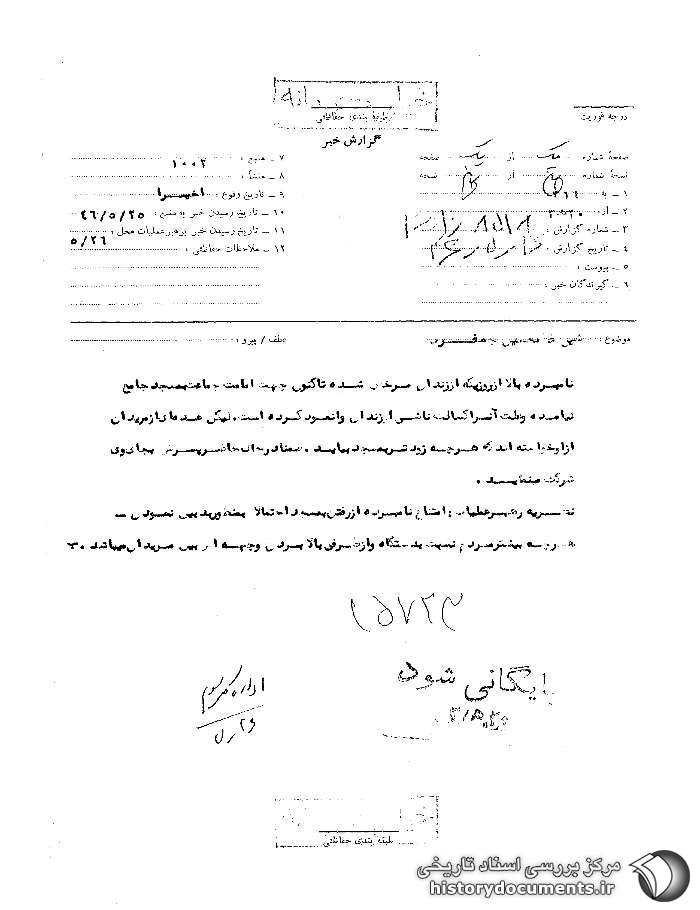 درجه فوریت
طبقه بندی حفاظتی
گزارش خبر
صفحه شماره یک از یک صفحه
نسخه شماره از نسخه
۱ - به ۳۱۶
۲ - از
۳ - شماره گزارش :
۴ - تاریخ گزارش :
۵ - پیوست :
۶ - گیرندگان خبر :
۷ - منبع : ۱۰۰۲
۸ - منشأ :
۹ - تاریخ وقوع : اخیرا
۱۰ - تاریخ رسیدن خبر به منبع : ۴۶/۵/۲۵
۱۱ - تاریخ رسیدن خبر برهبر عملیات محل : ۵/۲۶
۱۲ - ملاحظات حفاظتی :
موضوع : شیخ
عطف / پیرو :
نامبرده بالا ازروزیکه اززندان مرخص شده تاکنون جهت امامت جماعت بمسجد جامع
نیامده وعلت آنرا کسالت ناشی اززندان وانمود کرده است. لیکن عده‌ای ازمریدان
ازاوخواسته اند که هرچه زودتربمسجد بیاید . ضمنا درحال حاضرپسرش بجای وی
شرکت مینماید .
نظریه رهبرعملیات : امتناع نامبرده ازرفتن بمسجد احتمالا بمنظوربدبین نمودن
هرچه بیشترمردم نسبت بدستگاه وازطرفی بالا بردن وجهه اش بین مریدان میباشد .
۱۵۷۲۳
بایگانی شود
اداره کل سوم
طبقه بندی حفاظتی
مرکز بررسی اسناد تاریخی
historydocuments.ir